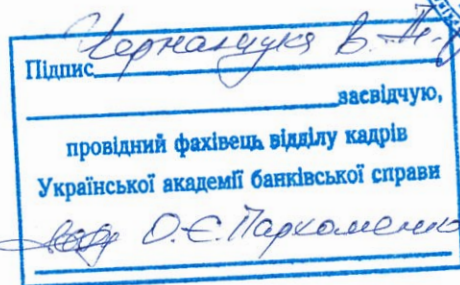 Підпис Чернащука В. А.
засвідчую,
провідний фахівець відділу кадрів
Української академії банківської справи
О.Є.Пархоменко